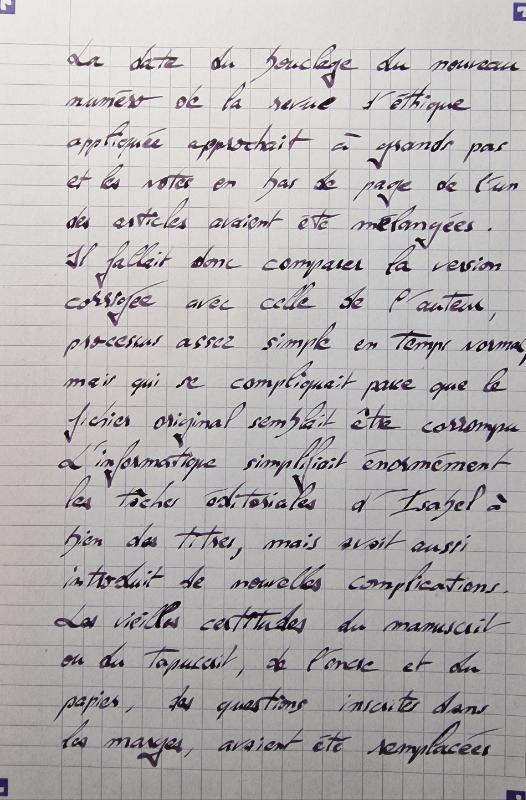 La date du bouclage du nouveau
numéro de la revue d'éthique
appliquée approchait à grands pas
et les notes en bas de page de l'un
des articles avaient été mélangées.
Il fallait donc comparer la version
corrigée avec celle de l'auteur,
processus assez simple en temps normal,
mais qui se compliquait parce que le
fichier original semblait être corrompu
L'informatique simplifiait énormément
les tâches éditoriales d'Isabel à
bien des titres, mais avait aussi
introduit de nouvelles complications.
Les vieilles certitudes du manuscrit
ou du tapuscrit, de l'encre et du
papier, des questions inscrites dans
les marges, avaient été remplacées